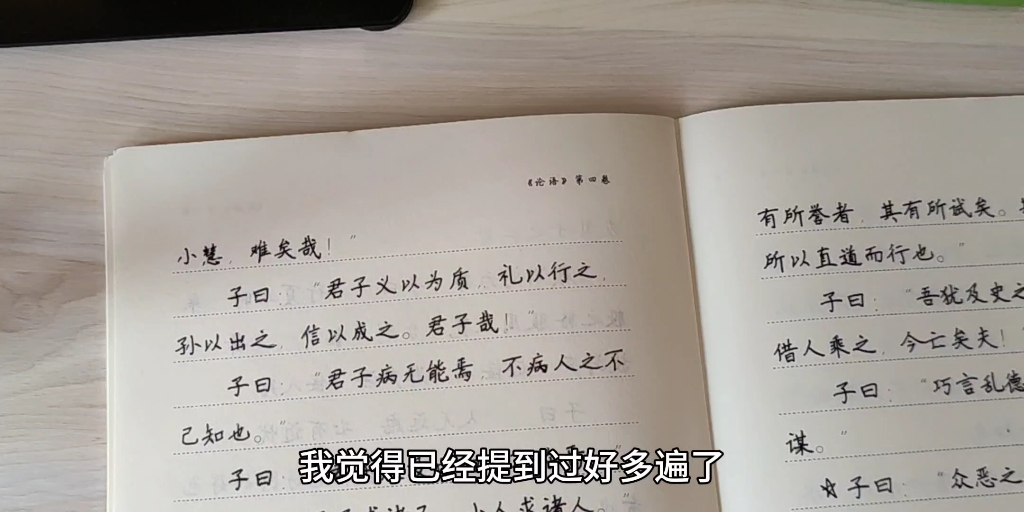 《论语》第四卷
小慧，难矣哉！”
子曰：“君子义以为质，礼以行之，
孙以出之，信以成之。君子哉！”
子曰：“君子病无能焉，不病人之不
己知也。”
子曰：
小人求诸人。”
有所誉者，其有所试矣。
所以直道而行也。”
子曰：“吾犹及史之
借人乘之，今亡矣夫！”
子曰：“巧言乱德
谋。”
☆子曰：“众恶之
我觉得已经提到过好多遍了